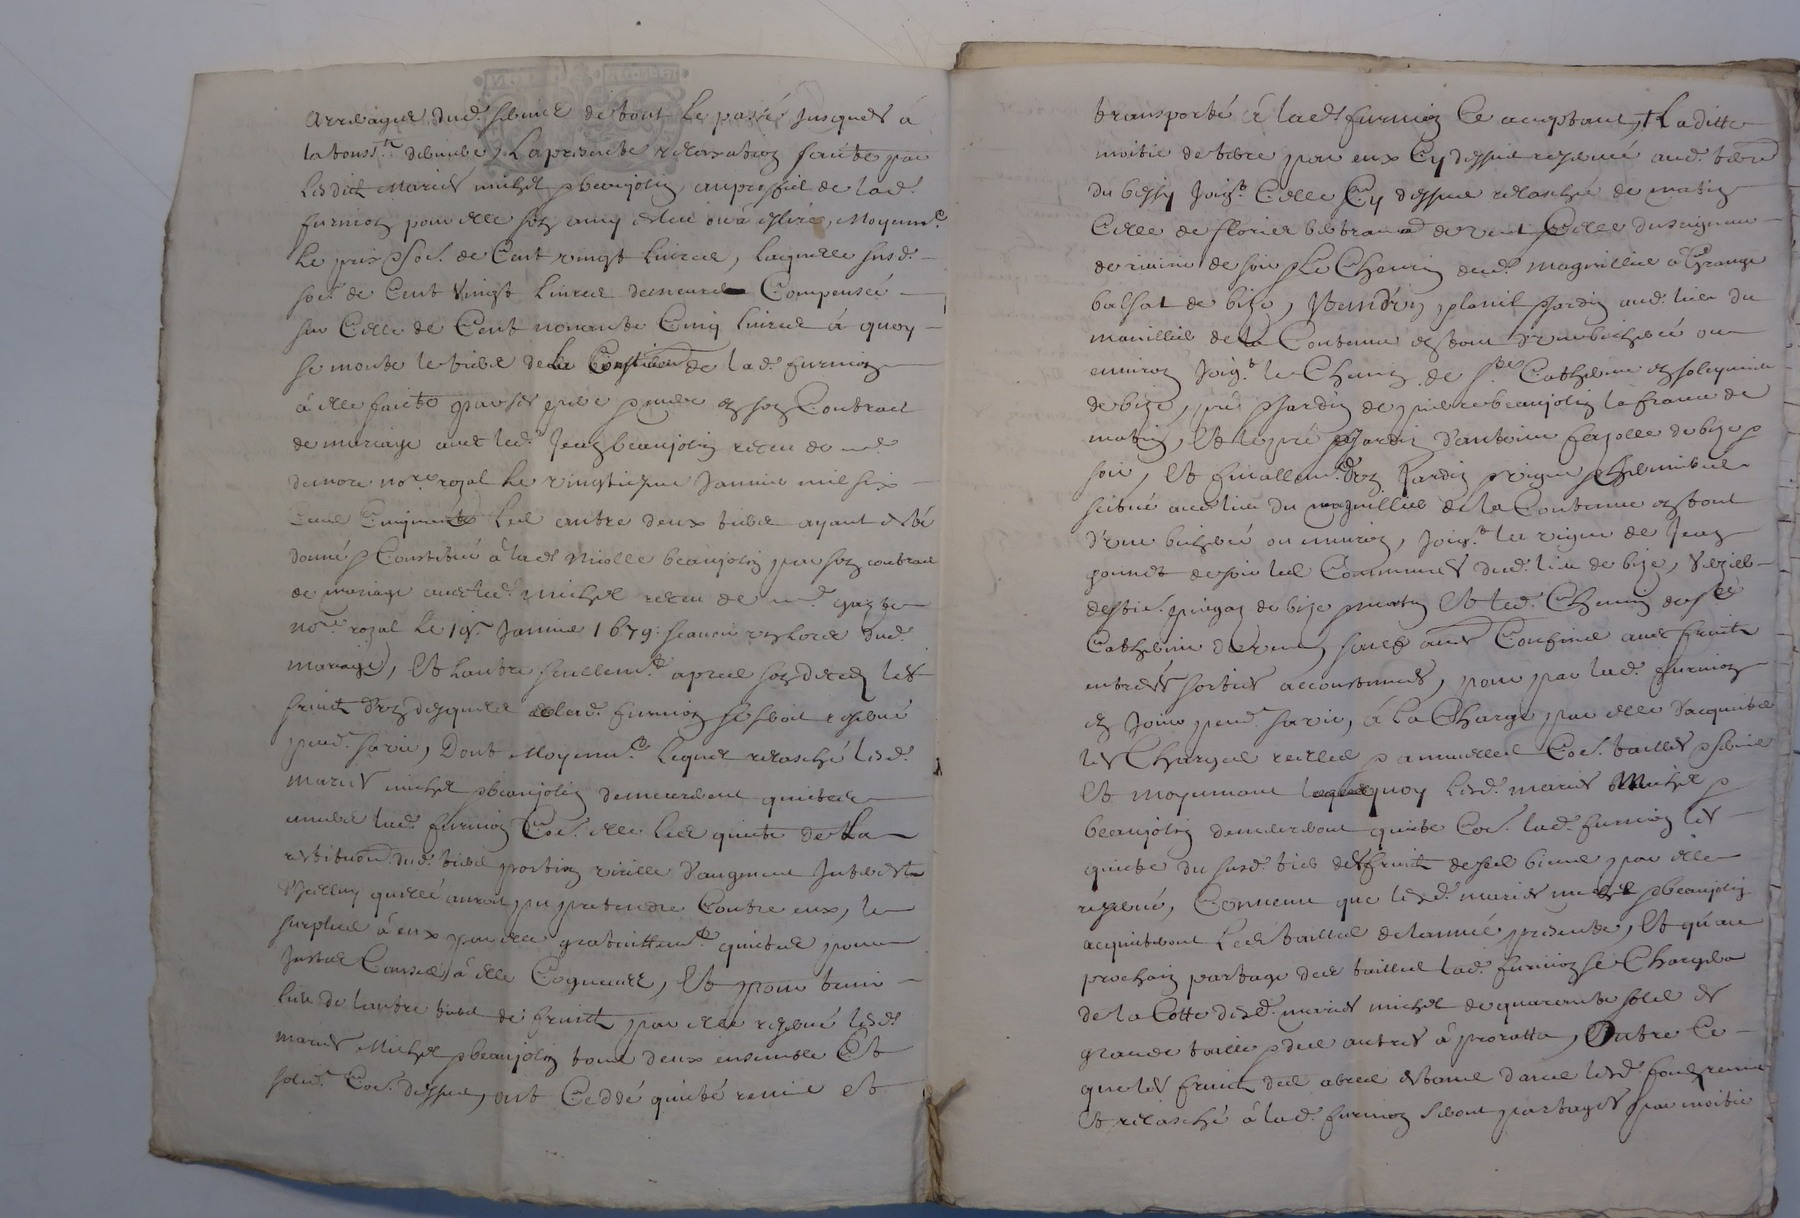 arreraiges dud. servis de tout le passé jusques à
la touss.ts derniere, La presente relaxation faite par
lesdits mariés michel & beaujolin au proffict de lad.
furnion pour elle son amy esleu ou à eslire, Moyenn.t
le prix & so.e de Cent vingt livres, laquelle susd.
so.e de Cent vingt livres demeure Compensée
sur Celle de Cent nonante Cinq livres à quoy
se monte le tiers de la Constitution de lad. furnion
à elle faicte par ses pere & mere en son Contract
de mariage avec led. Jean beaujolin receu de m.e
demore no.re royal le vingtiesme Janvier mil six
cent Cinquante Les autre deux tiers ayant esté
donné & Constitué à lad. Nicolle beaujolin par son contract
de mariage avec led. Michel receu de m.e
no.re royal le 19.e Janvier 1679. scavoir un lors dud.
mariage, Et l'autre seullem.t apres son deces les
fruits d'un desquels lad. furnion se seroit reservé
pend. sa vie, Dont Moyenn.t lequel relasché lesd.
mariés michel & beaujolin demeureront quittes
envers lad. furnion Co.e elle les quitte de La
restitution dud. tiers portion virille d'augment Interests
& Jceluy qu'elle auroit pu pretendre Contre eux, le
surplus à eux par elle gratuittem.t quitté pour
Justes Causes à elle Cogneues, Et pour tenir
lieu de l'autre tiers de fruits par elle reservé lesd.
mariés Michel & beaujolin tous deux ensemble Et
solid.t Co.e dessus, ont Ceddé quitté remis et
transporté à lad. furnion Ce acceptant, La ditte
moitié de terre par eux Cy dessus reservé aud. terroir
du bessy Joig.t Celle Cy dessus relaschée de matin
Celle de florier bertrand de vent & Celle du seigneur
de de soir & Le Chemin dud. magnillier à Grange
balsat de bize, Jtem d'un planil & Jardin aud. lieu du
manillier de la Contenue en tout d'une bicherée ou
environ Joig.t le Chemin de s.te Catherine en soleymieu
de bize, pré & Jardin de pierre beaujolin la france de
matin, Et le pré & Jardin d'antoine ferjolle de bize &
soir, Et finallem.t d'un Jardin & vigne & Cheneviere
scitué aud. lieu du magnillier de la Contenue en tout
d'une bicherée ou environ, Joig.t la vigne de Jean
gonnet de soir les Communes dud. lieu de bize,
de bize & matin Et led. Chemin de s.te
Catherine de vent, sauf autres Confins avec fruits
entrées sorties accoustumées, pour par lad. furnion
en Jouir pend. sa vie, à la Charge par elle d'acquitter
les Charges reelles & annuelles Co.e tailles & servis
Et moyennant quoy lesd. mariés Michel &
beaujolin demeureront quitte Co.e lad. furnion les
quitte du susd. tiers des fruits de ses biens par elle
reservé, Convenu que lesd. mariés michel & beaujolin
acquitteront Les tailles de l'année presente, Et qu'au
prochain partage des tailles lad. furnion se Chargera
de la Cotte desd. mariés michel de quarante solz en
grande taille & des autres à proratta, Outre Ce
que les fruits des arbres estans dans lesd. fonds remis
Et relasché à lad. furnion seront partagés par moitié